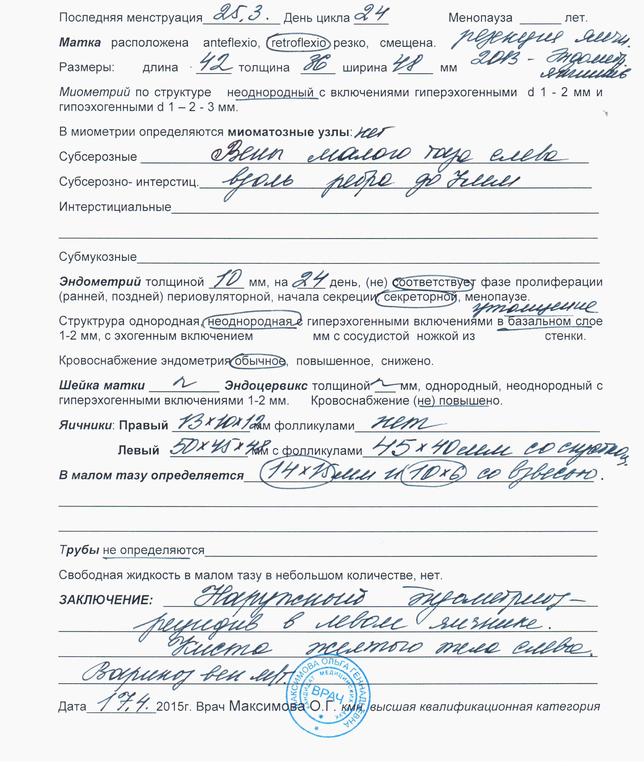 Последняя менструация 25,3. День цикла 24 Менопауза ______ лет.
Матка расположена anteflexio, retroflexio резко, смещена. резекция яичн.
Размеры: длина 42 толщина 36 ширина 48 мм 2013 - Эндомет. яичников
Миометрий по структуре неоднородный с включениями гиперэхогенными d 1 - 2 мм и
гипоэхогенными d 1 – 2 - 3 мм.
В миометрии определяются миоматозные узлы: нет
Субсерозные Вены малого таза слева
Субсерозно- интерстиц. вдоль ребра до 7мм
Интерстициальные
Субмукозные
Эндометрий толщиной 10 мм, на 24 день, (не) соответствует фазе пролиферации
(ранней, поздней) периовуляторной, начала секреции, секреторной, менопаузе.
утолщение
Структрура однородная, неоднородная с гиперэхогенными включениями в базальном слое
1-2 мм, с эхогенным включением мм с сосудистой ножкой из стенки.
Кровоснабжение эндометрия обычное, повышенное, снижено.
Шейка матки N Эндоцервикс толщиной N мм, однородный, неоднородный с
гиперэхогенными включениями 1-2 мм. Кровоснабжение (не) повышено.
Яичники: Правый 13×10×12 мм фолликулами нет
Левый 50×45×48 мм с фолликулами 45×40мм со
В малом тазу определяется 14×15мм и 10×6 со взвесью.
Трубы не определяются
Свободная жидкость в малом тазу в небольшом количестве, нет.
ЗАКЛЮЧЕНИЕ: Наружный эндометриоз-
рецидив в левом яичнике.
Киста желтого тела слева.
Варикоз вен мт.
МАКСИМОВА ОЛЬГА ГЕННАДЬЕВНА
КАНДИДАТ МЕДИЦИНСКИХ НАУК
ВРАЧ
Дата 17,4. 2015г. Врач Максимова О.Г. кмн, высшая квалификационная категория